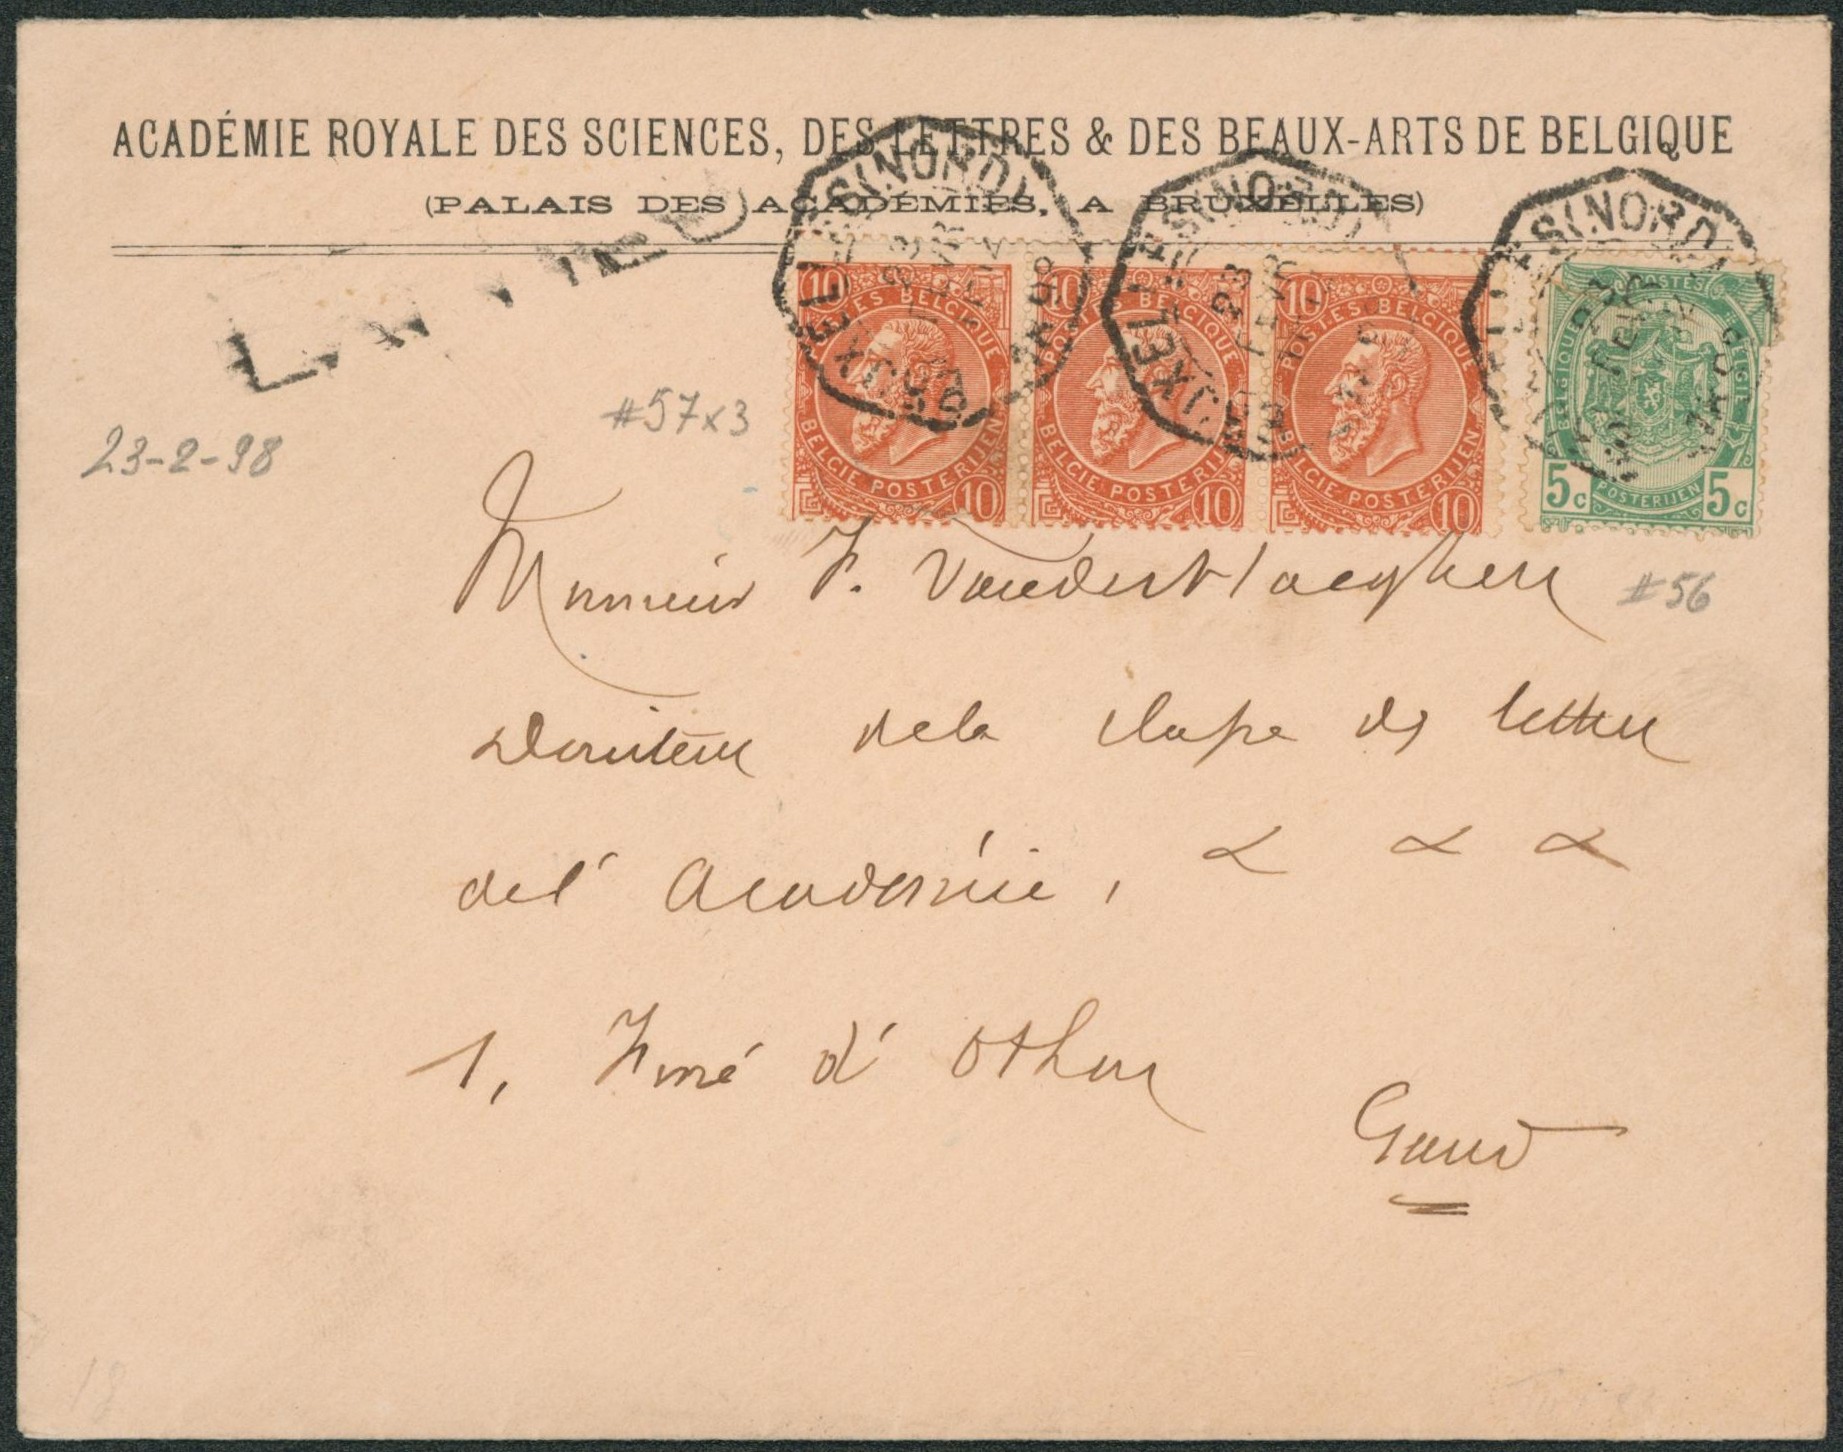 ACADÉMIE ROYALE DES SCIENCES, DES LETTRES & DES BEAUX-ARTS DE BELGIQUE
(PALAIS DES ACADÉMIES, A BRUXELLES)
23-2-98
#57x3
10 POSTES BELGIQUE
BELGIE POSTERIJEN 10
10 POSTES BELGIQUE
BELGIE POSTERIJEN 10
10 POSTES BELGIQUE
BELGIE POSTERIJEN 10
POSTES
BELGIQUE BELGIE
5c POSTERIJEN 5c
BRUXELLES (NORD)
23 FEVR
BRUXELLES (NORD)
23 FEVR
BRUXELLES (NORD)
Monsieur F. Vanderhaeghen
#56
Directeur de la classe des lettres
de l'Académie, & & &
1, Fossé d'Othon
Gand
18